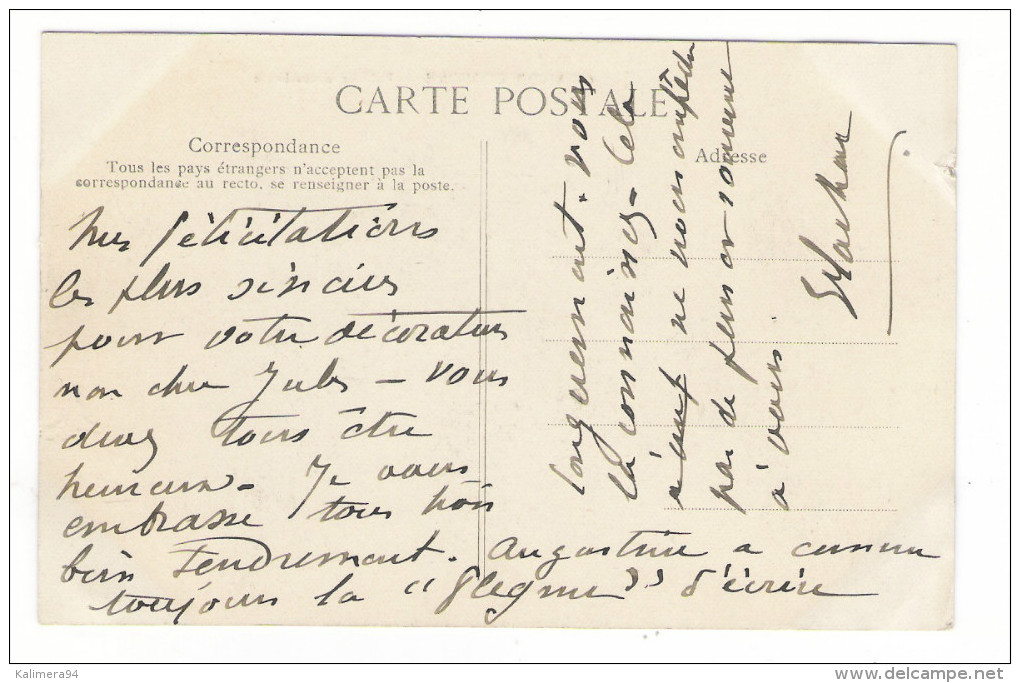 CARTE POSTALE
Correspondance
Tous les pays étrangers n'acceptent pas la
correspondance au recto. se renseigner à la poste.
Adresse
Mes félicitations
les plus sincères
pour votre décoration
mon cher Jules — vous
devez tous être
heureux — Je vous
embrasse tous trois
bien Tendrement. Augustine a comme
toujours la "flegme" d'écrire
longuement. vous
la connaissez — Cela
ne nous empêche
pas de penser souvent
à vous
Kalimera94
www.delcampe.net